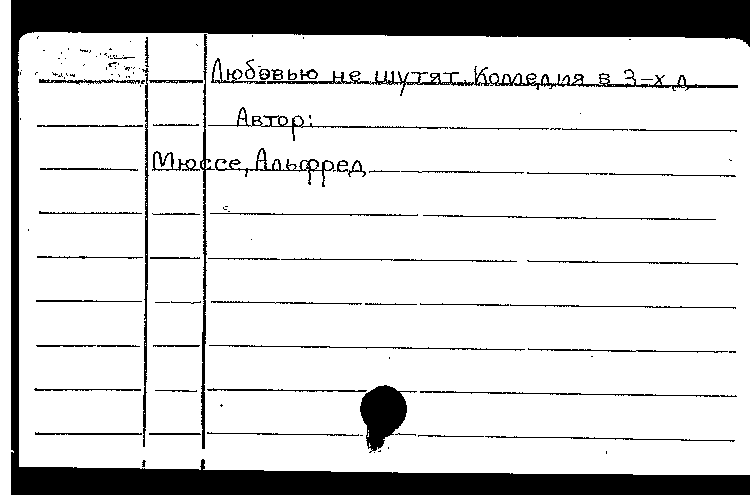 Любовью не шутят. Комедия в 3-х д.
Автор:
Мюссе, Альфред